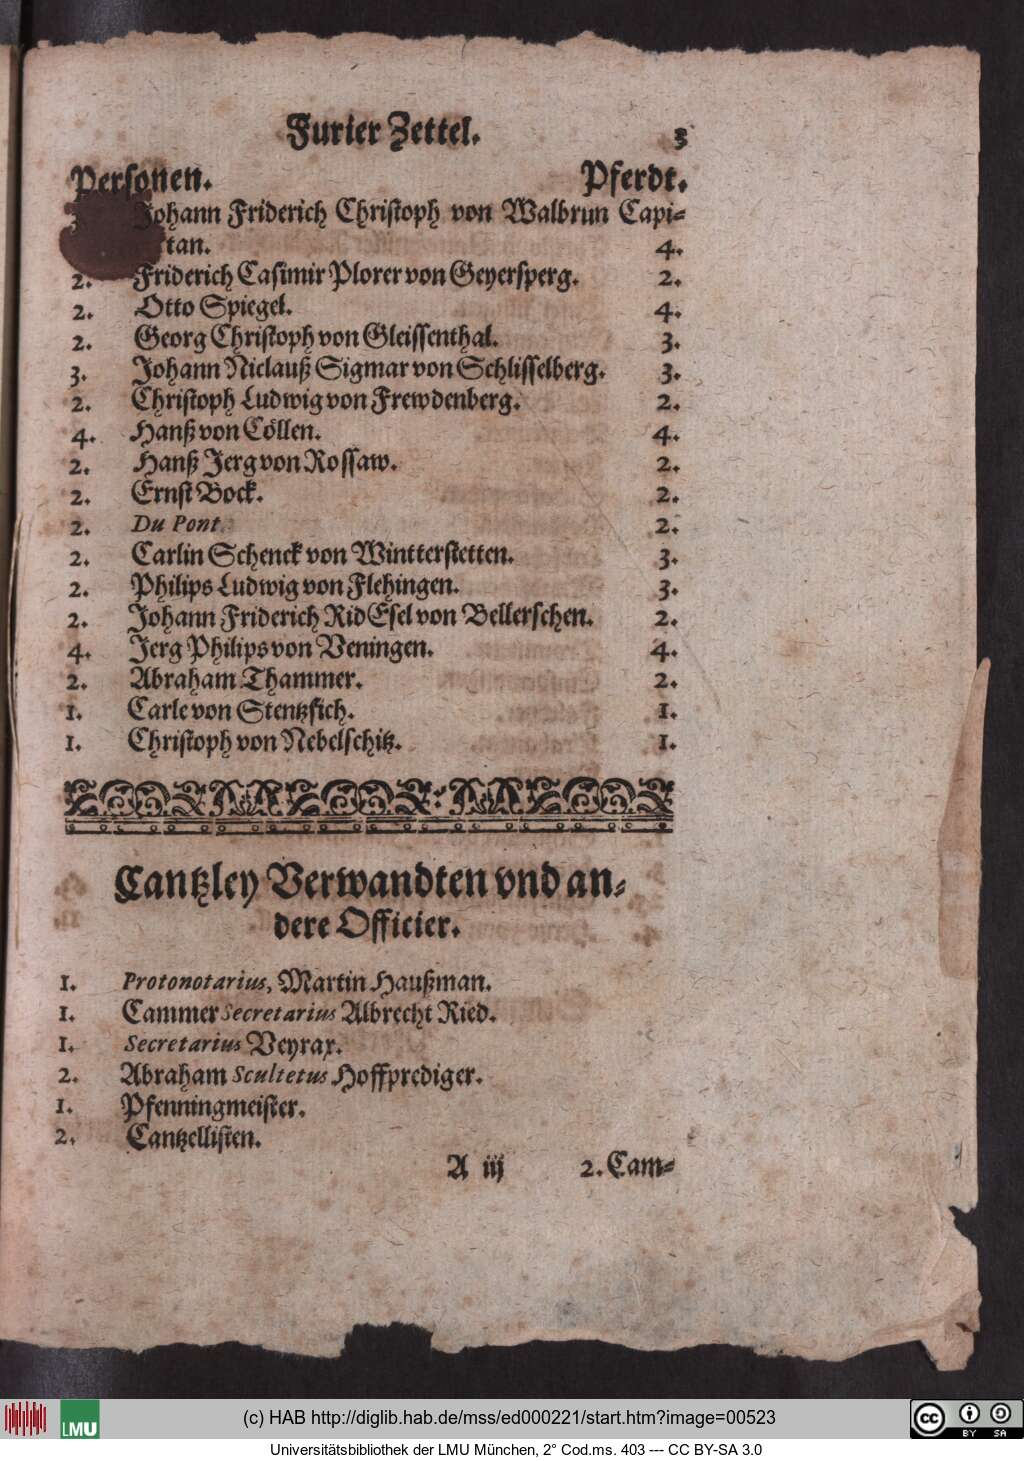 Furier Zettel. 3
Personen. Pferdt.
Johann Friderich Christoph von Walbrun Capi-
tan. 4.
2. Friderich Casimir Plorer von Geyersperg. 2.
2. Otto Spiegel. 4.
2. Georg Christoph von Gleissenthal. 3.
3. Johann Niclauß Sigmar von Schlisselberg. 3.
2. Christoph Ludwig von Frewdenberg. 2.
4. Hanß von Cöllen. 4.
2. Hanß Jerg von Rossaw. 2.
2. Ernst Bock. 2.
2. Du Pont. 2.
2. Carlin Schenck von Wintterstetten. 3.
2. Philips Ludwig von Flehingen. 3.
2. Johann Friderich RidEsel von Bellerschen. 2.
4. Jerg Philips von Veningen. 4.
2. Abraham Thammer. 2.
1. Carle von Stentzsich. 1.
1. Christoph von Nebelschitz. 1.
Cantzley Verwandten vnd an-
dere Officier.
1. Protonotarius, Martin Haußman.
1. Cammer Secretarius Albrecht Ried.
1. Secretarius Veyrax.
2. Abraham Scultetus Hoffprediger.
1. Pfenningmeister.
2. Cantzellisten.
A iij 2. Cam-
LMU
(c) HAB http://diglib.hab.de/mss/ed000221/start.htm?image=00523
cc BY SA
Universitätsbibliothek der LMU München, 2° Cod.ms. 403 --- CC BY-SA 3.0